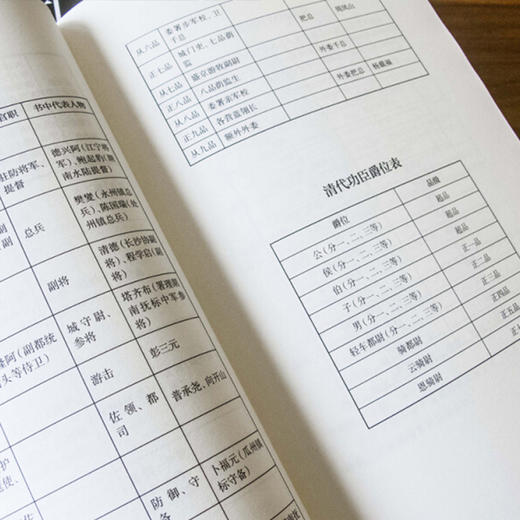 官职 书中代表人物
驻防将军、 德兴阿(江宁将
提督 军)、鲍起豹(湖
南水陆提督)
总兵 樊燮(永州镇总
兵)、陈国瑞(处
州镇总兵)
副将 清德(长沙协副
将)、程学启(副
将)
城守尉、 塔齐布(署理湖
参将 南抚标中军参
将)
阿(副都统
头等侍卫) 游击 彭三元
佐领、都 普承尧、向开山
司
防御、守 卜福元(瓜州镇
备 标守备)
从六品 委署步军校、卫
千总 把总 周凤山
正七品 城门吏、七品荫
监 外委千总
从七品 盛京游牧副尉
正八品 八品荫监生 外委把总 杨载福
从八品 委署亲军校
正九品 各营蓝翎长
从九品 额外外委
清代功臣爵位表
爵位 品级
公(分一、二、三等) 超品
侯(分一、二、三等) 超品
伯(分一、二、三等) 超品
子(分一、二、三等) 正一品
男(分一、二、三等) 正二品
轻车都尉(分一、二、三等) 正三品
骑都尉 正四品
云骑尉 正五
恩骑尉 正七